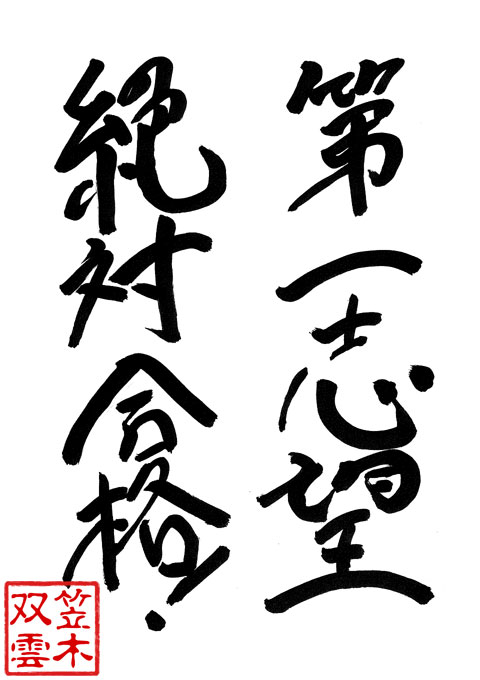 第一志望
絶対合格!
笠木
双雲